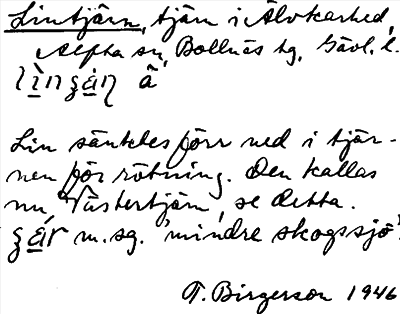 Lintjärn, tjärn i Älvkarhed,
Alfta sn, Bollnäs tg, Gävl. l.
å
Lin sänktes förr ned i tjär-
nen för rötning. Den kallas
nu Västertjärn, se detta.
m. sg. "mindre skogssjö".
T. Birgerson 1946